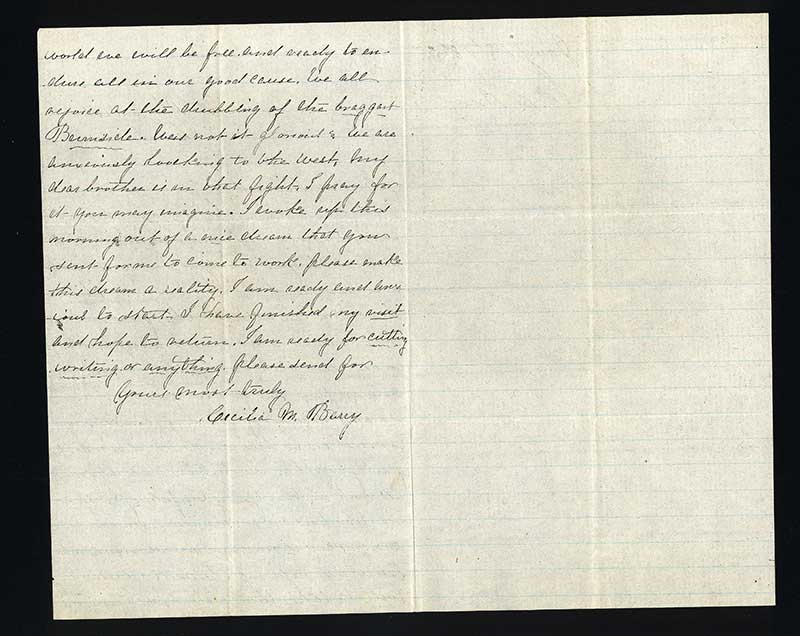 world we will be free and ready to en-
dure all in our good cause. We all
rejoice at the drubbing of the braggart
Burnside. Was not it glorious? We are
anxiously looking to the West, my
dear brother is in that fight. I pray for
it you may imagine. I woke up this
morning out of a nice dream that you
sent for me to come to work. please make
this dream a reality. I am ready and anx-
ious to start. I have finished my visit
and hope to return. I am ready for cutting
writing or anything. please send for
Yours most truly
Cecilia M. Barry